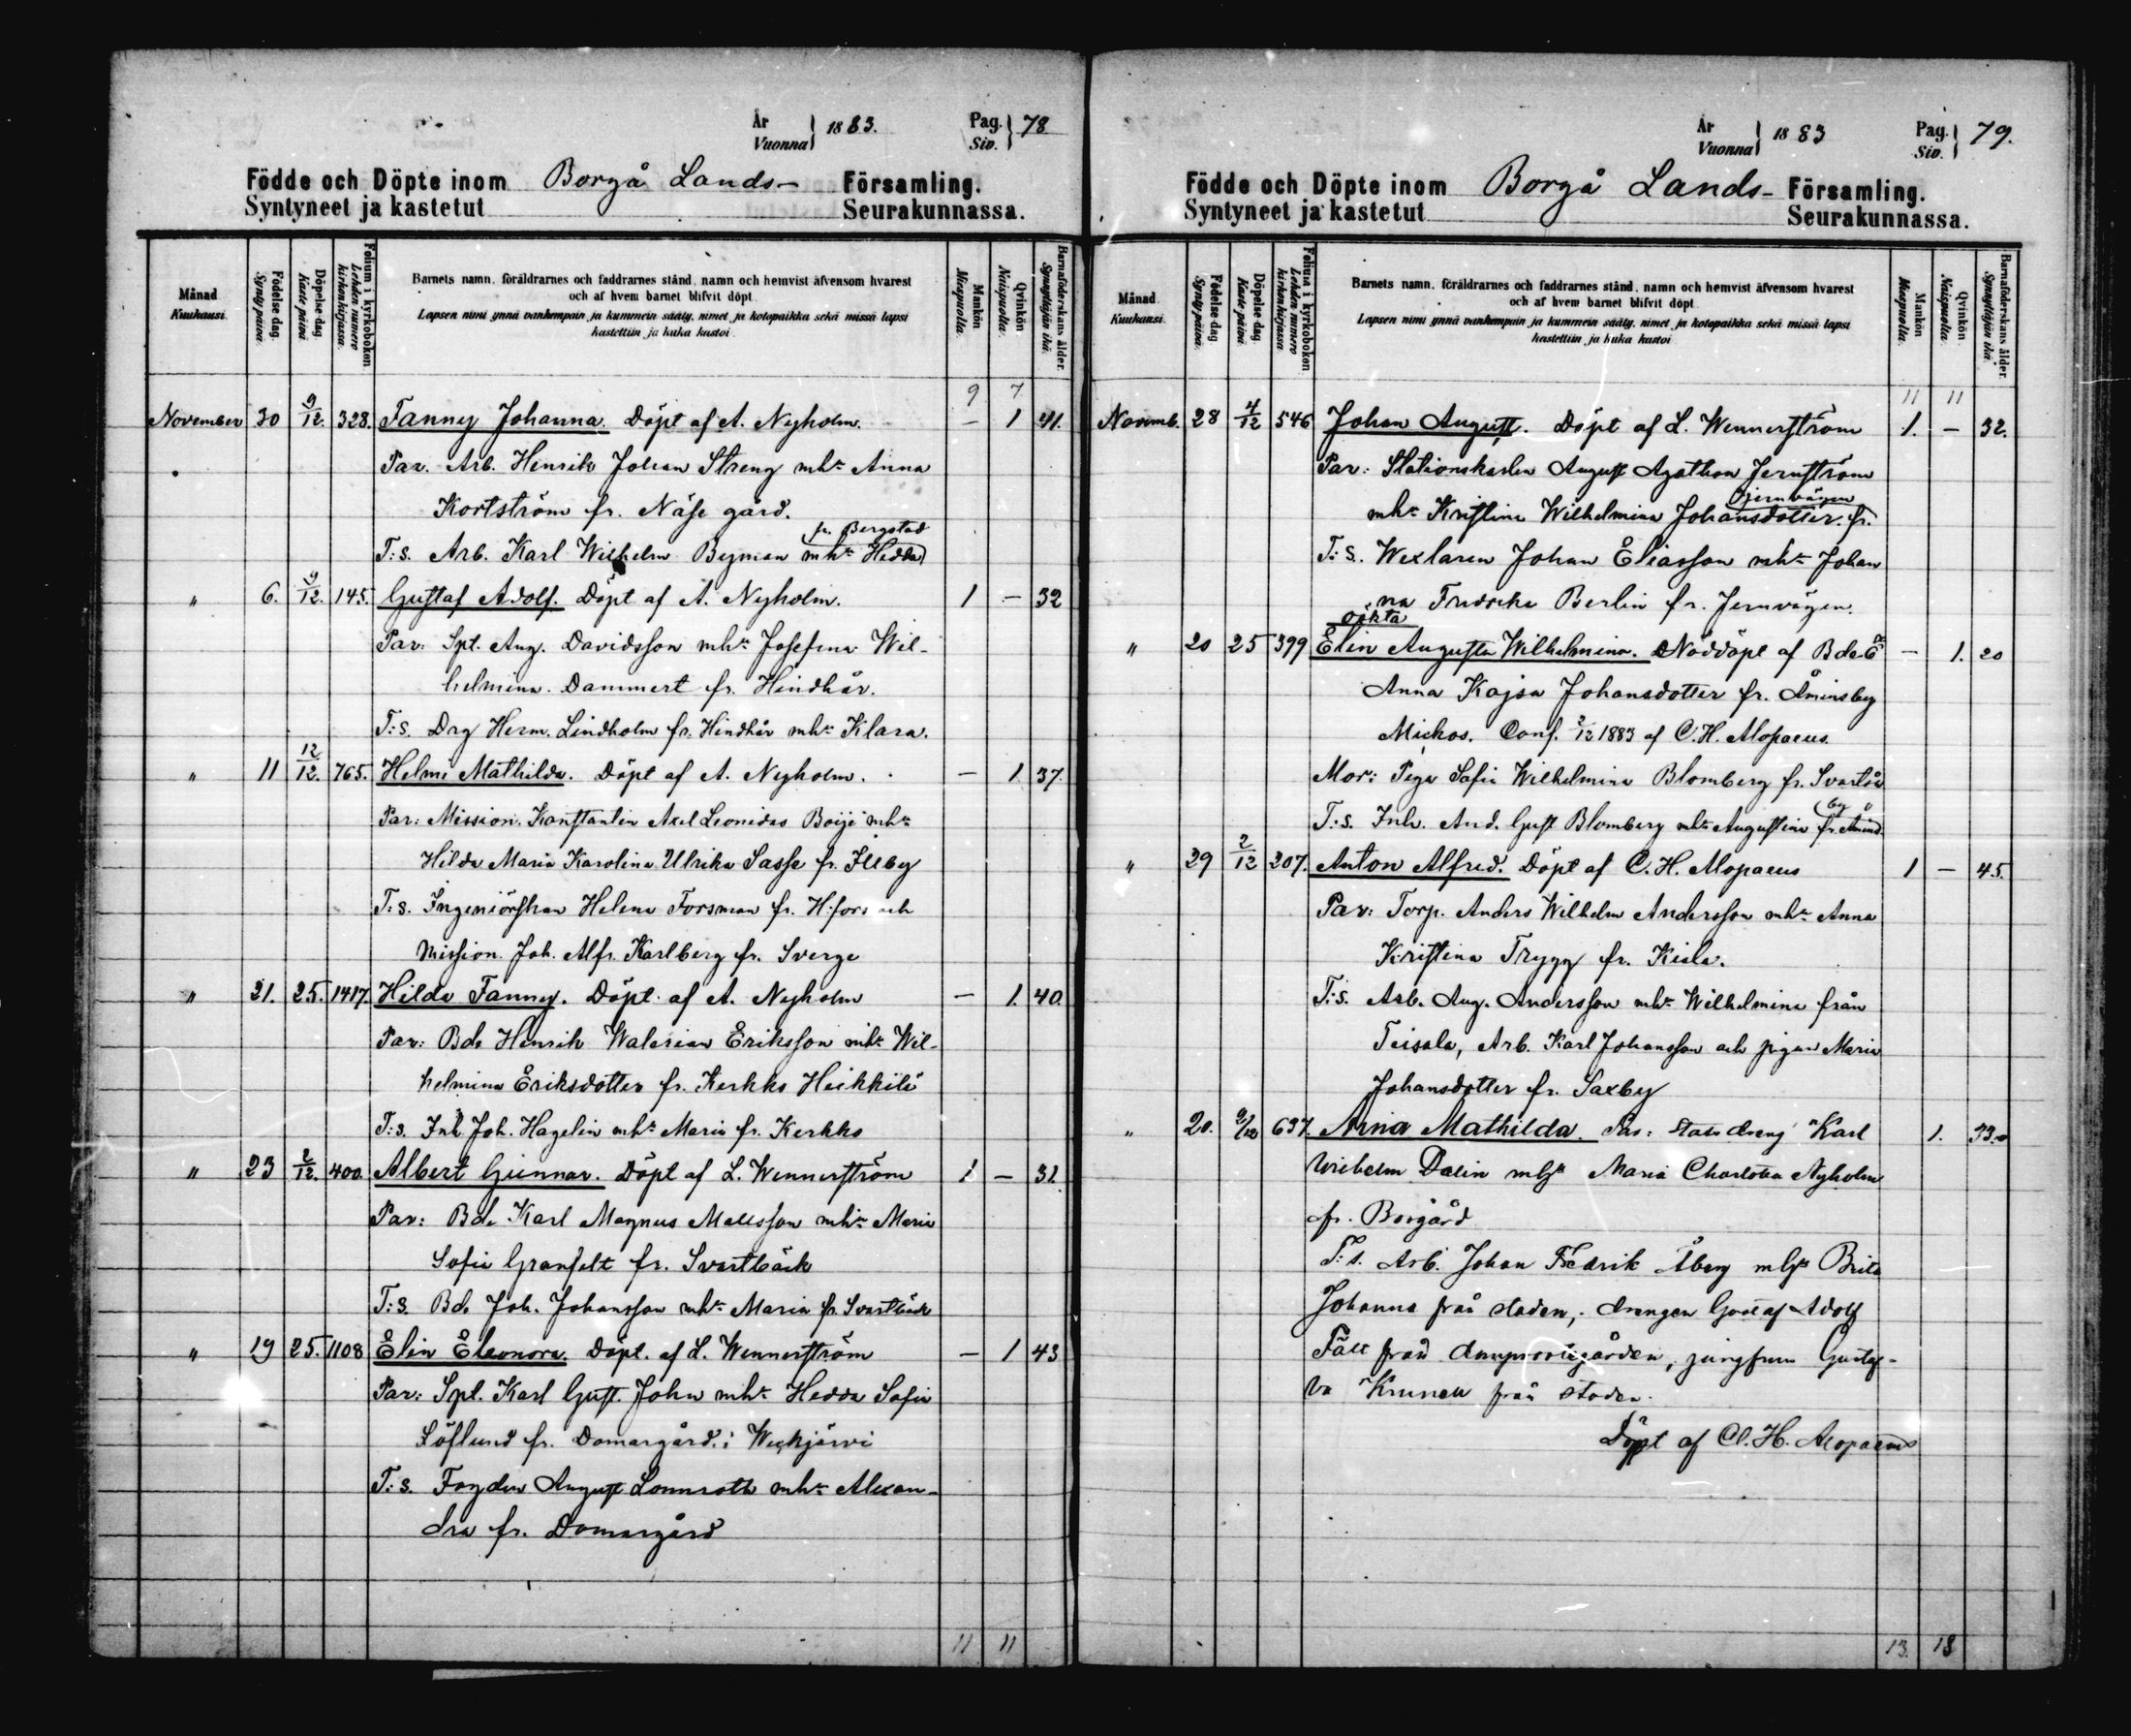 År
Vuonna } 1883.
Pag.
Siv. } 78
Födde och Döpte inom Borgå Lands- Församling.
Syntyneet ja kastetut Seurakunnassa.
Månad
Kuukausi.
Födelse dag.
Synty päivä.
Döpelse dag.
Kaste päivä.
Folium i kyrkoboken
Lehden numero
kirkonkirjassa.
Barnets namn, föräldrarnes och faddrarnes stånd, namn och hemvist äfvensom hvarest
och af hvem barnet blifvit döpt.
Lapsen nimi ynnä vanhempain ja kummein sääty, nimet ja kotopaikka sekä missä lapsi
kastettiin ja kuka kastoi.
Mankön
Miespuolta.
Qvinkön
Naispuolta.
Barnaföderskans ålder.
Synnyttäjän ikä.
9 7
November 30 9/12 328. Fanny Johanna. Döpt af A. Nyholm. — 1 41.
Par. Arb. Henrik Johan Streng mhr Anna
Kortström fr. Näse gård.
fr. Bergstad
T:s. Arb. Karl Wilhelm Byman mhr Hedda
" 6. 9/12. 145. Gustaf Adolf. Döpt af A. Nyholm. 1 — 32
Par: Spt. Aug. Davidsson mhr Josefina Wil-
helmina Dammert fr. Hindhår.
T:s. Drg Herm. Lindholm fr. Hindhår mhr Klara.
" 11 12/12. 765. Helmi Mathilda. Döpt af A. Nyholm. — 1 37.
Par: Mission. Konstantin Axel Leonidas Boije mhr
Hilda Maria Karolina Ulrika Sasse fr. Illby
T:s. Ingeniörsfran Helena Forsman fr. H:fors och
Mission. Joh. Alfr. Karlberg fr. Sverge
" 21. 25. 1417. Hilda Fanny. Döpt af A. Nyholm — 1. 40.
Par: Bde Henrik Walerian Eriksson mhr Wil-
helmina Eriksdotter fr. Kerkko Heikkilä
T:s. Inh Joh. Hagelin mhr Maria fr. Kerkko
" 23 2/12. 400. Albert Gunnar. Döpt af L. Wennerström 1 — 31
Par: Bde Karl Magnus Mattsson mhr Maria
Sofia Granfelt fr. Svartbäck
T:s. Bde Joh. Johansson mhr Maria fr. Svartbäck
" 19 25. 1108 Elin Eleonora. Döpt. af L. Wennerström — 1 43
Par: Spt. Karl Gust. John mhr Hedda Sofia
Löflund fr. Domargård i Weckjärvi
T:s. Fogden August Lönnroth mhr Alexan-
dra fr. Domargård
11 11
År
Vuonna } 1883
Pag.
Siv. } 79.
Födde och Döpte inom Borgå Lands- Församling.
Syntyneet ja kastetut Seurakunnassa.
Månad.
Kuukausi.
Födelse dag
Synty päivä.
Döpelse dag.
Kaste päivä.
Folium i kyrkoboken
Lehden numero
kirkonkirjassa
Barnets namn, föräldrarnes och faddrarnes stånd, namn och hemvist äfvensom hvarest
och af hvem barnet blifvit döpt.
Lapsen nimi ynnä vanhempain ja kummein sääty, nimet ja kotopaikka sekä missä lapsi
kastettiin ja kuka kastoi
Mankön
Miespuolta.
Qvinkön
Naispuolta.
Barnaföderskans ålder.
Synnyttäjän ikä.
11 11
Novemb. 28 4/12 546 Johan August. Döpt af L. Wennerström 1. — 32.
Par: Stationskarlen August Agathon Jernström
Jernvägen
mhr Kristina Wilhelmina Johansdotter fr.
T:s. Wexlaren Johan Eliasson mhr Johan
na Fredrika Berlin fr. Jernvägen.
oäkta
" 20 25 399 Elin Augusta Wilhelmina. Nöddöpt af Bde — 1. 20
Anna Kajsa Johansdotter fr. Åminsby
Mickos. Conf. 2/12 1883 af C. H. Alopaeus.
Mor: Piga Sofia Wilhelmina Blomberg fr. Svartså
by
T:s. Inh. And. Gust Blomberg mhr Augustina fr. Åmins
" 29 2/12 207. Anton Alfred. Döpt af C. H. Alopaeus 1 — 45.
Par: Torp. Anders Wilhelm Andersson mhr Anna
Kristina Trygg fr. Kiala.
T:s. Arb. Aug. Andersson mhr Wilhelmina från
Teisala, Arb. Karl Johansson och pigan Maria
Johansdotter fr. Saxby
" 20. 9/12 637. Aina Mathilda. Par: Statsdreng Karl 1. 33.
Wilhelm Dalin mhr Maria Charlotta Nyholm
fr. Boegård
T:s. Arb. Johan Fredrik Åberg mhr Brita
Johanna från staden; drengen Gustaf Adolf
Fält från, jungfrun Gusta-
va från staden.
Döpt af C. H. Alopaeus
13. 13